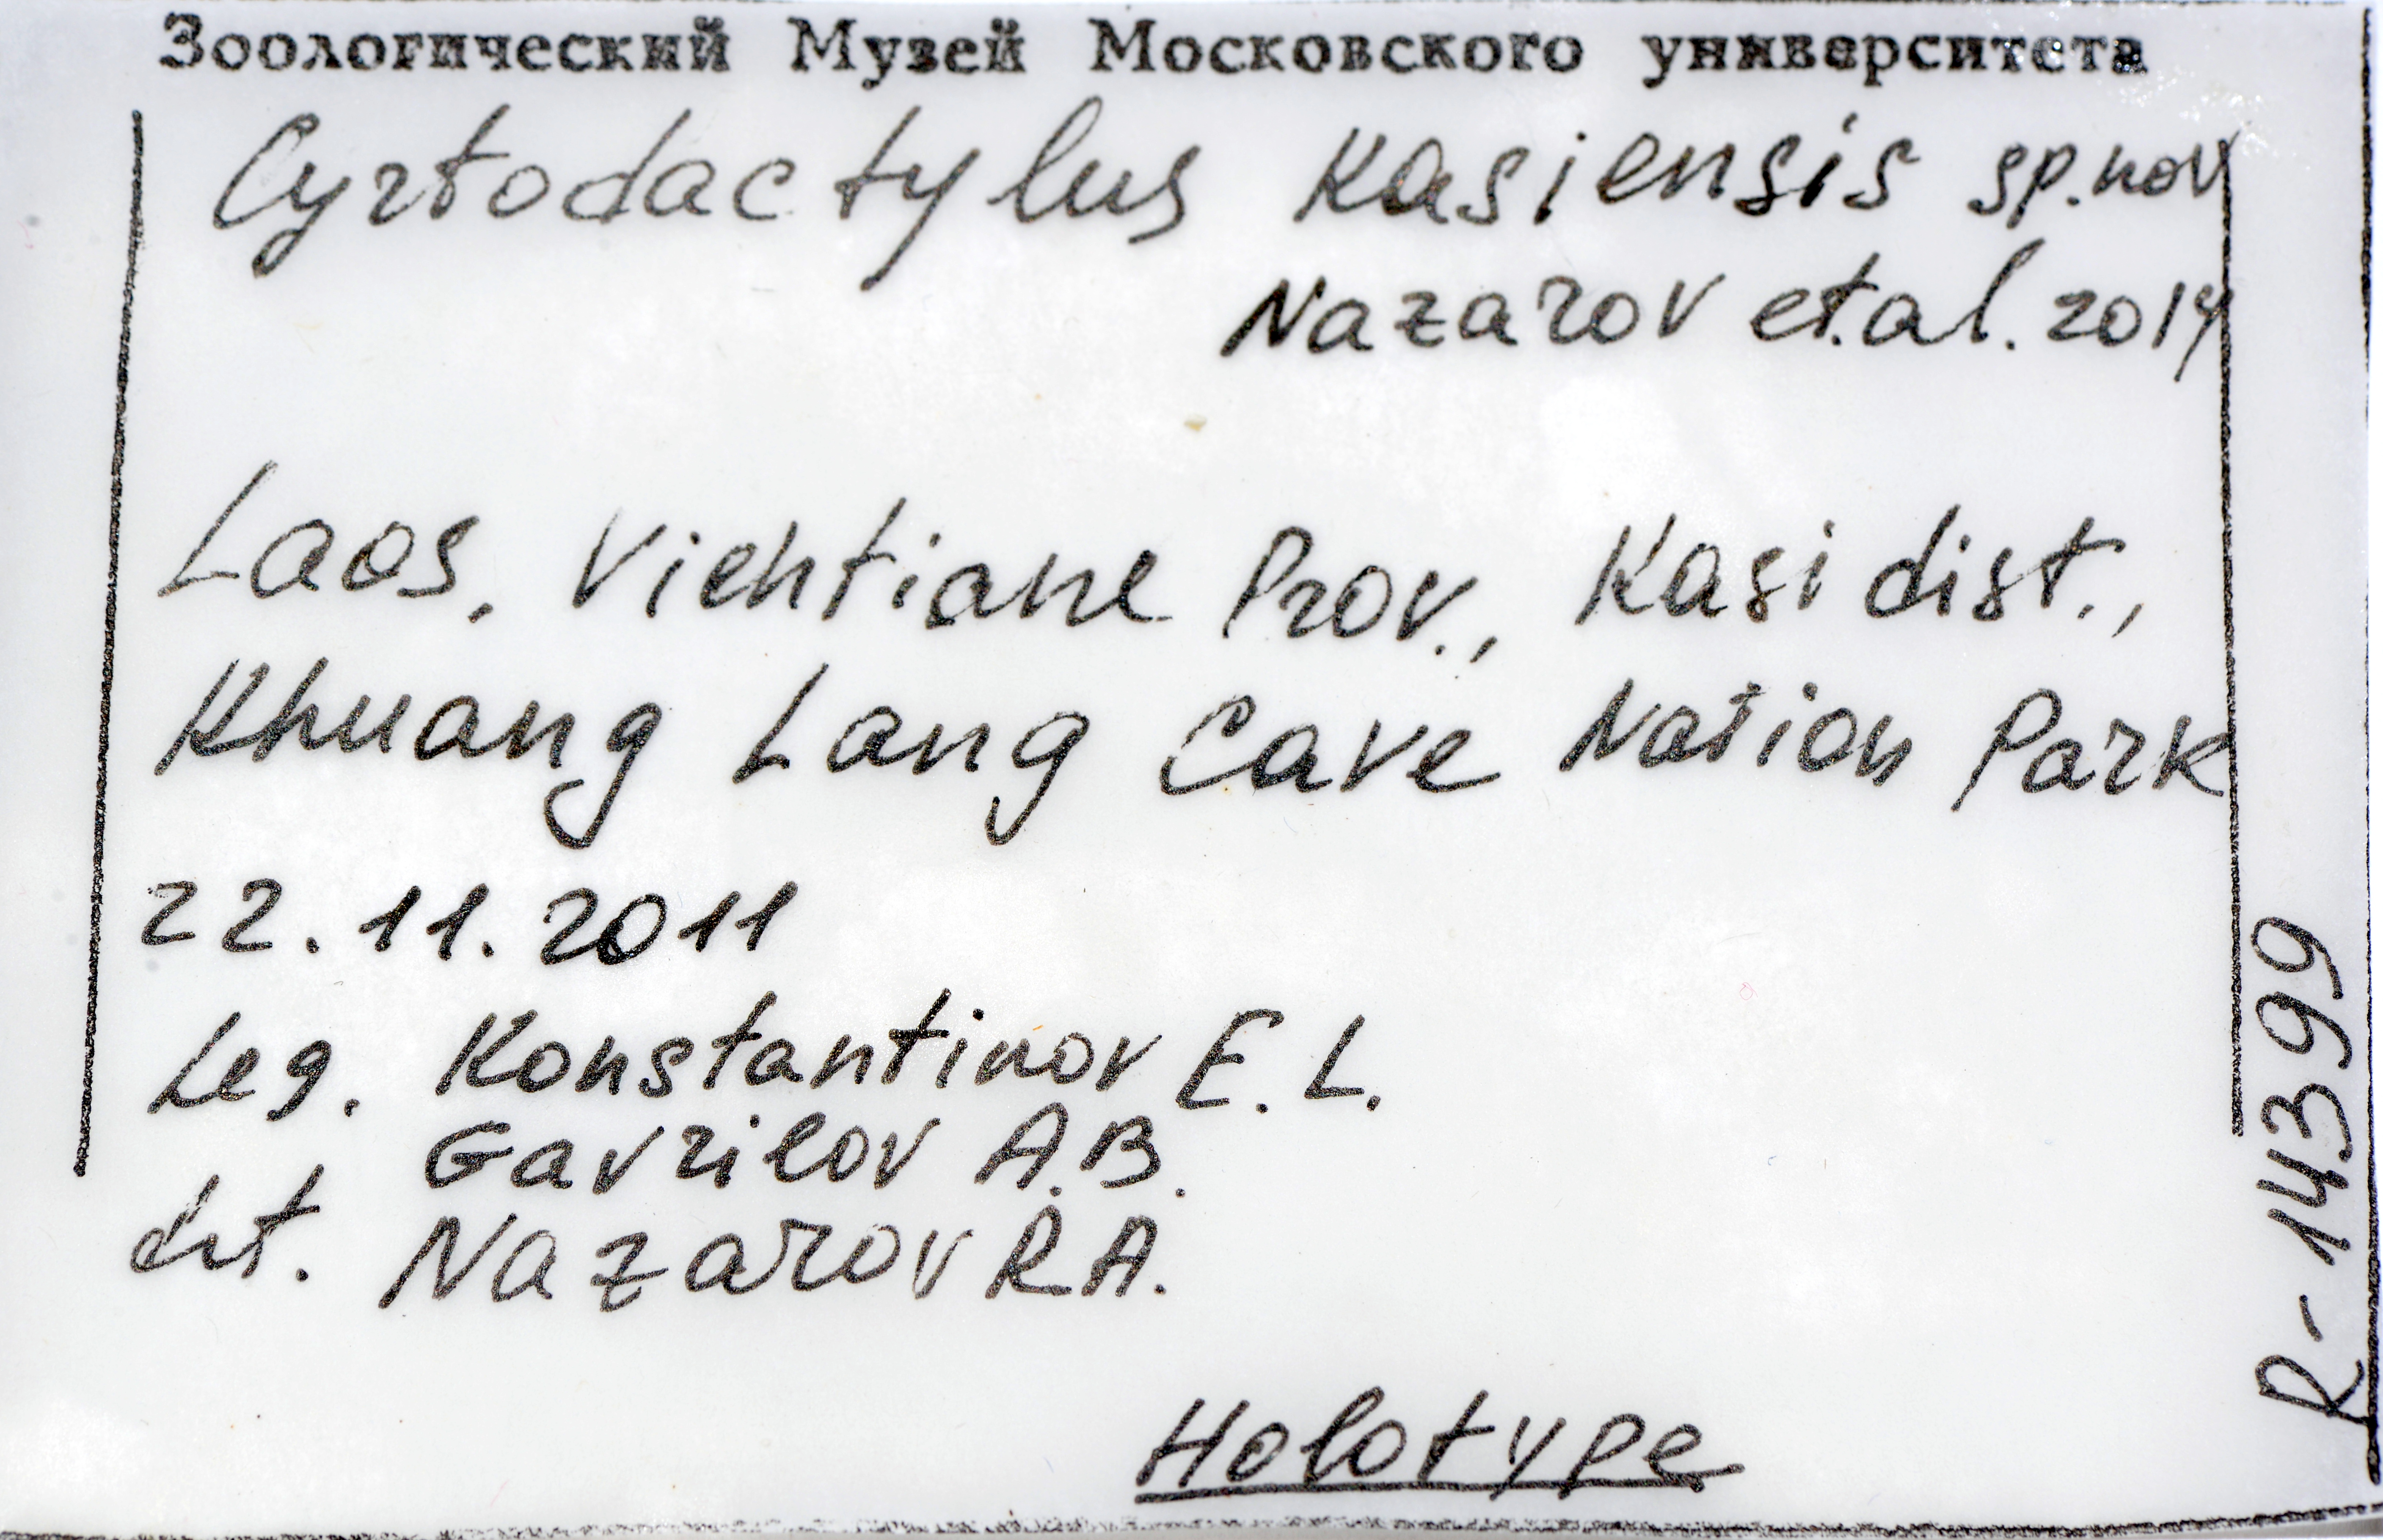 Зоологический Музей Московского университета
Cyrtodactylus kasiensis sp.nov
Nazarov et.al. 2014
Laos, Vientiane Prov., Kasi dist.,
Khuang Lang Cave Nation Park
22.11.2011
Leg. Konstantinov E.L.
Gavrilov A.B.
det. Nazarov R.A.
Holotype
R-14399